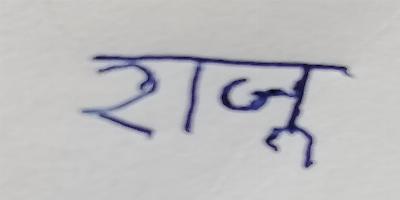 राजू